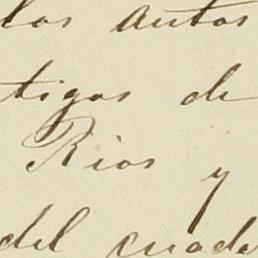 los autos
tigos de
Rios y
del cuade